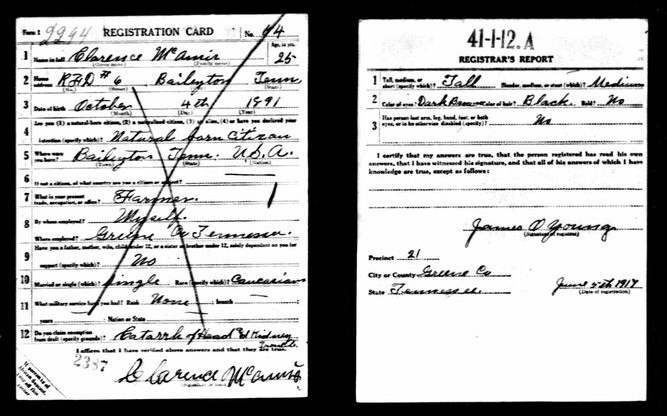 Form 1 2294 REGISTRATION CARD No. 44
1 Name in full Clarence McAmis Age, in yrs. 25
2 Home address R.F.D # 6 Baileyton Tenn
3 Date of birth October 4th 1891
(Month) (Day) (Year)
4 Are you (1) a natural-born citizen, (2) a naturalized citizen, (3) an alien, (4) or have you declared your
intention (specify which)? Natural born Citizen
5 Where were you born? Baileyton Tenn. U.S.A.
(Town) (State)
6 If not a citizen, of what country are you a citizen or subject?
7 What is your present trade, occupation, or office? Farmer
8 By whom employed? Myself.
Where employed? Greene Co Tennessee.
9 Have you a father, mother, wife, child under 12, or a sister or brother under 12, solely dependent on you for
support (specify which)? No
10 Married or single (which)? Single Race (specify which)? Caucasian
11 What military service have you had? Rank None ; branch
years ; Nation or State
12 Do you claim exemption from draft (specify grounds)? Catarrh of Head & Kidney
Trouble
I affirm that I have verified above answers and that they are true.
2387
Clarence McAmis
41-1-12. A
REGISTRAR'S REPORT
1 Tall, medium, or short (specify which)? Tall Slender, medium, or stout (which)? Medium
2 Color of eyes? Dark Brown Color of hair? Black. Bald? No
3 Has person lost arm, leg, hand, foot, or both
eyes, or is he otherwise disabled (specify)? No
I certify that my answers are true, that the person registered has read his own
answers, that I have witnessed his signature, and that all of his answers of which I have
knowledge are true, except as follows:
James O Young
(Signature of registrar)
Precinct 21
City or County Greene Co
State Tennessee. June 5th 1917
(Date of registration)